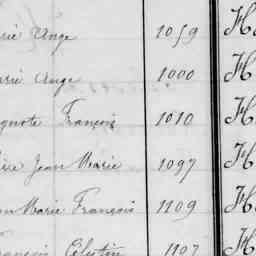 rie Ange 1059 H
arie Ange 1000 H
gnote François 1010 H
ère Jean Marie 1097 H
an Marie François 1109 H
rançois Célestin 1107 H